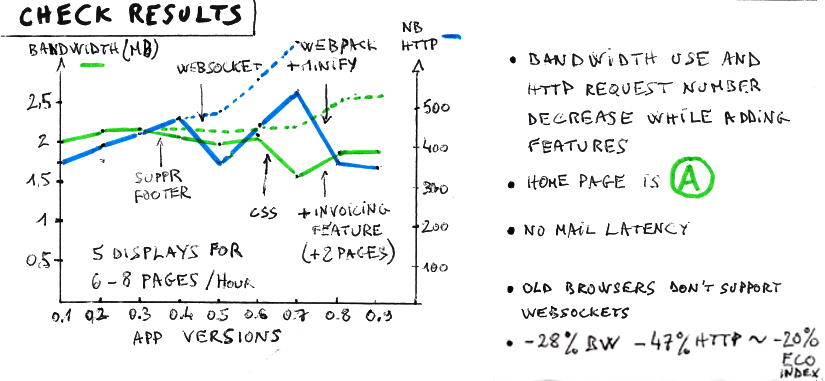 CHECK RESULTS
BANDWIDTH (MB)
NB
HTTP
WEBSOCKET
WEBPACK
+ MINIFY
2,5
2
1,5
1
0,5
500
400
300
200
100
SUPPR
FOOTER
CSS
+ INVOICING
FEATURE
(+2 PAGES)
5 DISPLAYS FOR
6-8 PAGES/HOUR
0.1 0.2 0.3 0.4 0.5 0.6 0.7 0.8 0.9
APP VERSIONS
• BANDWIDTH USE AND
HTTP REQUEST NUMBER
DECREASE WHILE ADDING
FEATURES
• HOME PAGE IS A
• NO MAIL LATENCY
• OLD BROWSERS DON'T SUPPORT
WEBSOCKETS
• -28% BW -47% HTTP ~ -20%
ECO
INDEX